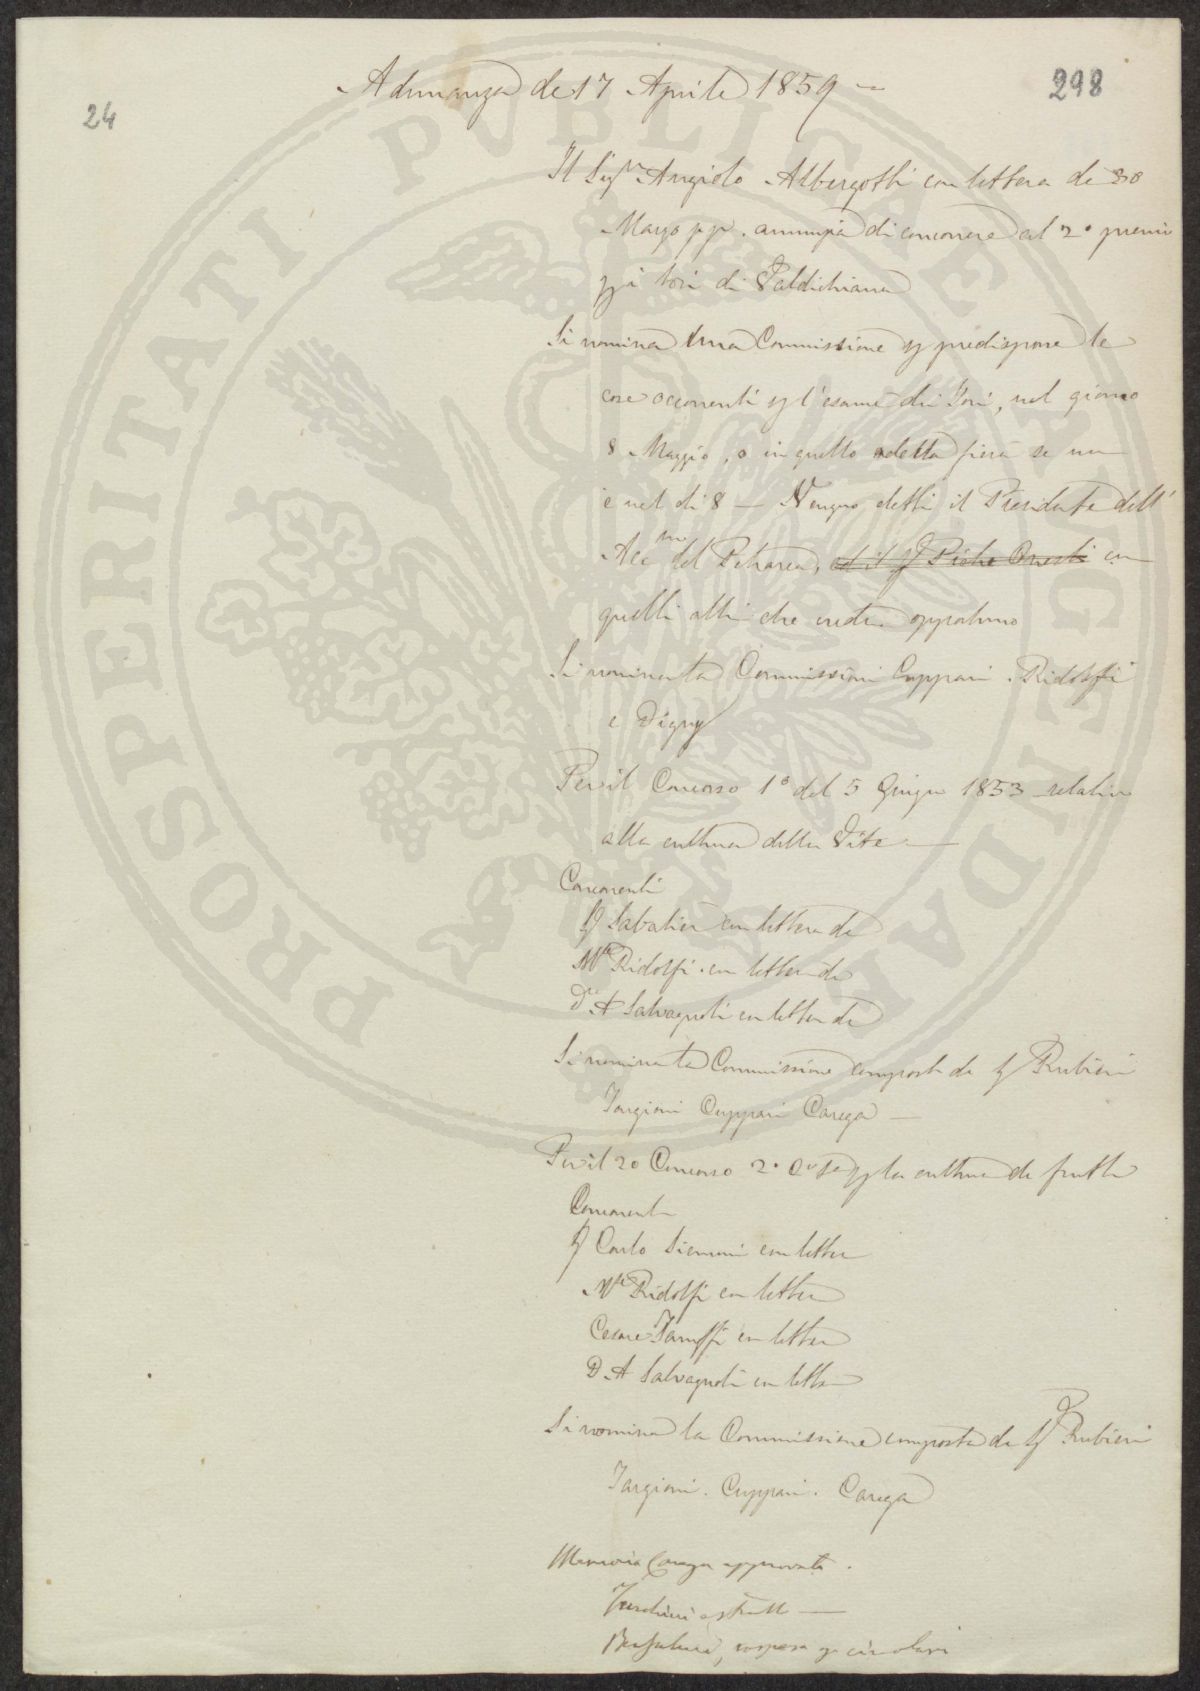 Adunanza de 17 Aprile 1859 —
298
24
Il Sigr Angiolo Albergotti con lettera de 30
Marzo pp. annunzia di concorrere al 2° premio
pei tori di Valdichiana
Si nomina una Commissione p predisporre le
cose occorrenti p l'esame dei Tori, nel giorno
8 Maggio, o in quello della fiera se non
è nel dì 8 — Vengono eletti il Presidente dell'
Acc del Petrarca, ed il Sig Onesti con
quelli altri che creder opportuno
Si nomina la Commissione Cuppari. Ridolfi
e Digny
Per il Concorso 1° del 5 Giugno 1853 relativo
alla cultura della Vite —
Concorrenti
Sig Sabatier con lettera de
Mse Ridolfi. con lettera de
Dr A Salvagnoli con lettera de
Si nomina la Commissione composta de Sig Rubieri
Targioni Cuppari Carega —
Per il 2o Concorso 2° p la cultura de frutti
Concorrenti
Sig Carlo Siemoni con lettera
Mse Ridolfi con lettera
Cesare Taruffi con lettera
D. A Salvagnoli con lettera
Si nomina la Commissione composta de Sig Rubieri
Targioni. Cuppari. Carega
Memoria Carega approvata.
PROSPERITATI PUBLICAE AUGENDAE